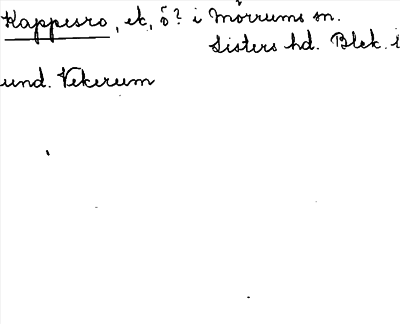 Kappesro, ek, ö? i Mörrums sn.
Listers hd. Blek. l
und. Vekerum